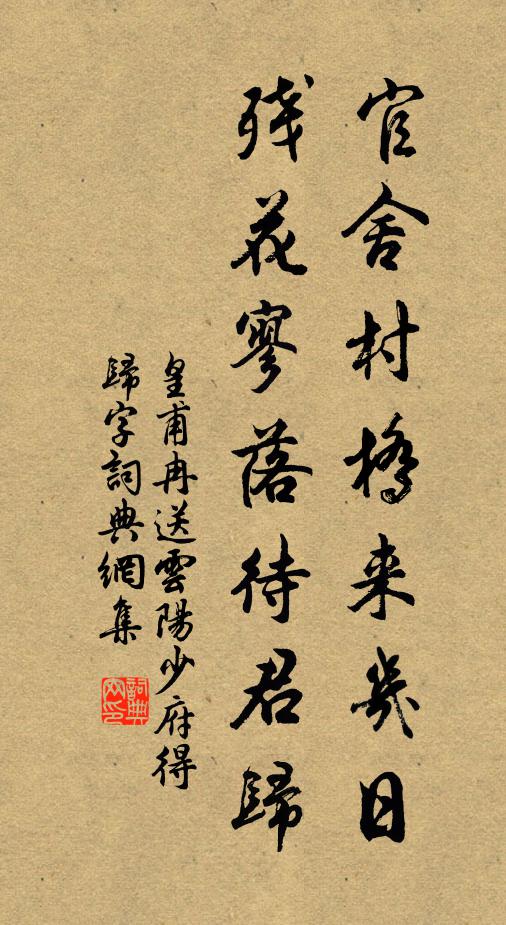 官舍村橋来幾日
残花寥落待君歸
皇甫冉送雲陽少府得
歸字詞典網集
詞典网印